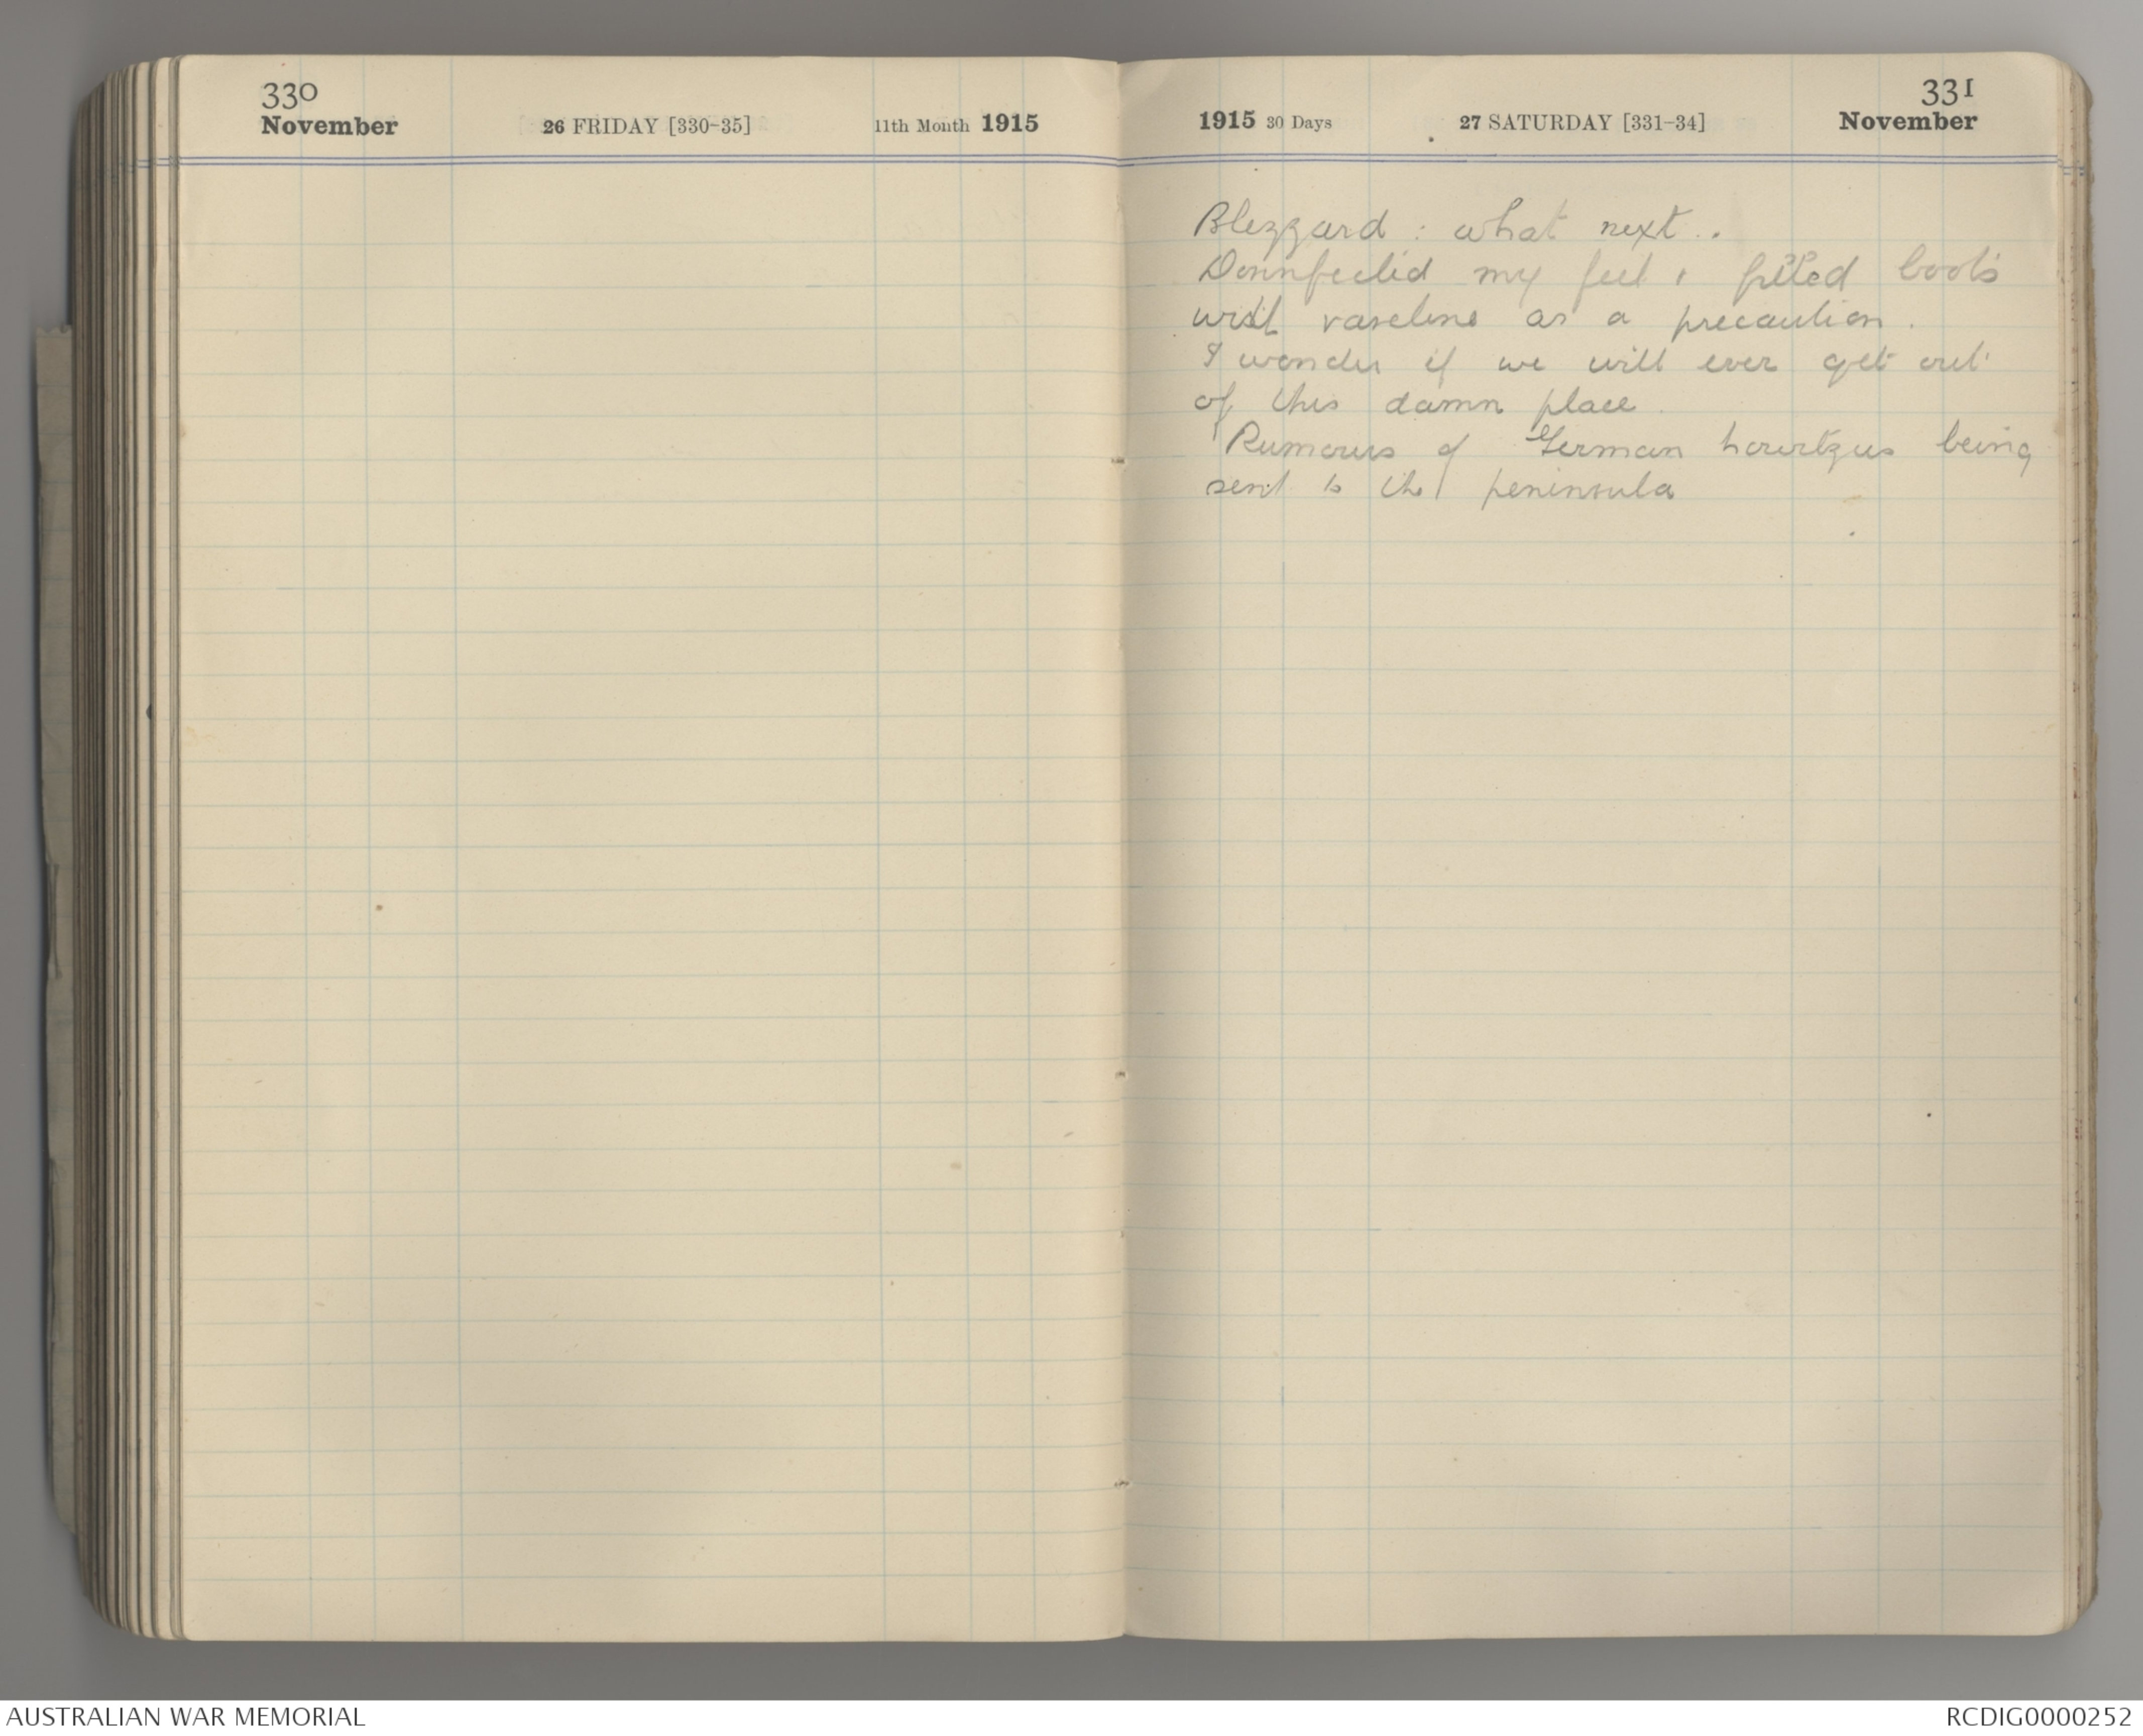 330
November 26 FRIDAY [330-35] 11th Month 1915
331
1915 30 Days 27 SATURDAY [331-34] November
Blezzard : what next..
my feet & filled boots
with vaseline as a precaution.
I wonder if we will ever get out
of this damn place.
Rumours of German howitzers being
sent to the peninsula
AUSTRALIAN WAR MEMORIAL
RCDIG0000252